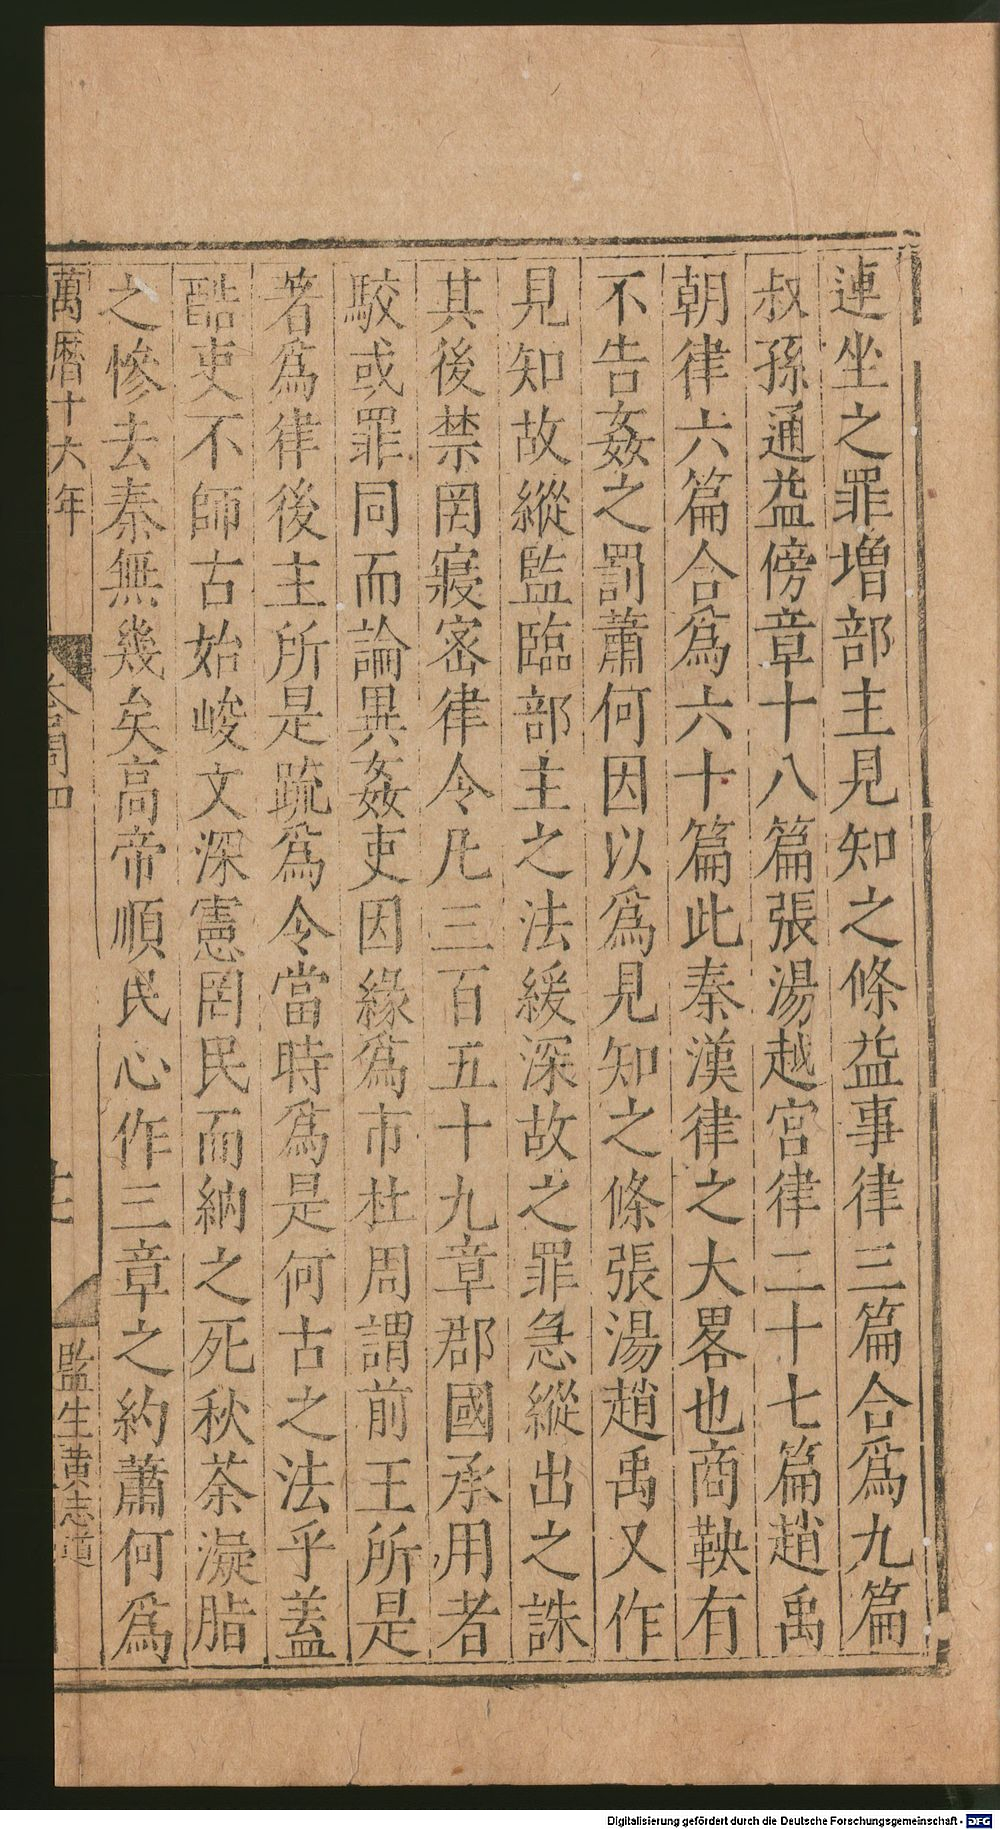 連坐之罪増部主見知之條益事律三篇合爲九篇
叔孫通益傍章十八篇張湯越宮律二十七篇趙禹
朝律六篇合爲六十篇此秦漢律之大畧也商鞅有
不告姦之罰蕭何因以爲見知之條張湯趙禹又作
見知故縱監臨部主之法緩深故之罪急縱出之誅
其後禁罔寢密律令凡三百五十九章郡國承用者
駮或罪同而論異姦吏因緣爲市杜周謂前王所是
著爲律後主所是疏爲令當時爲是何古之法乎蓋
酷吏不師古始峻文深憲罔民而納之死秋荼凝脂
之慘去秦無幾矣高帝順民心作三章之約蕭何爲
萬曆十六年
監生黄志道
Digitalisierung gefördert durch die Deutsche Forschungsgemeinschaft - DFG